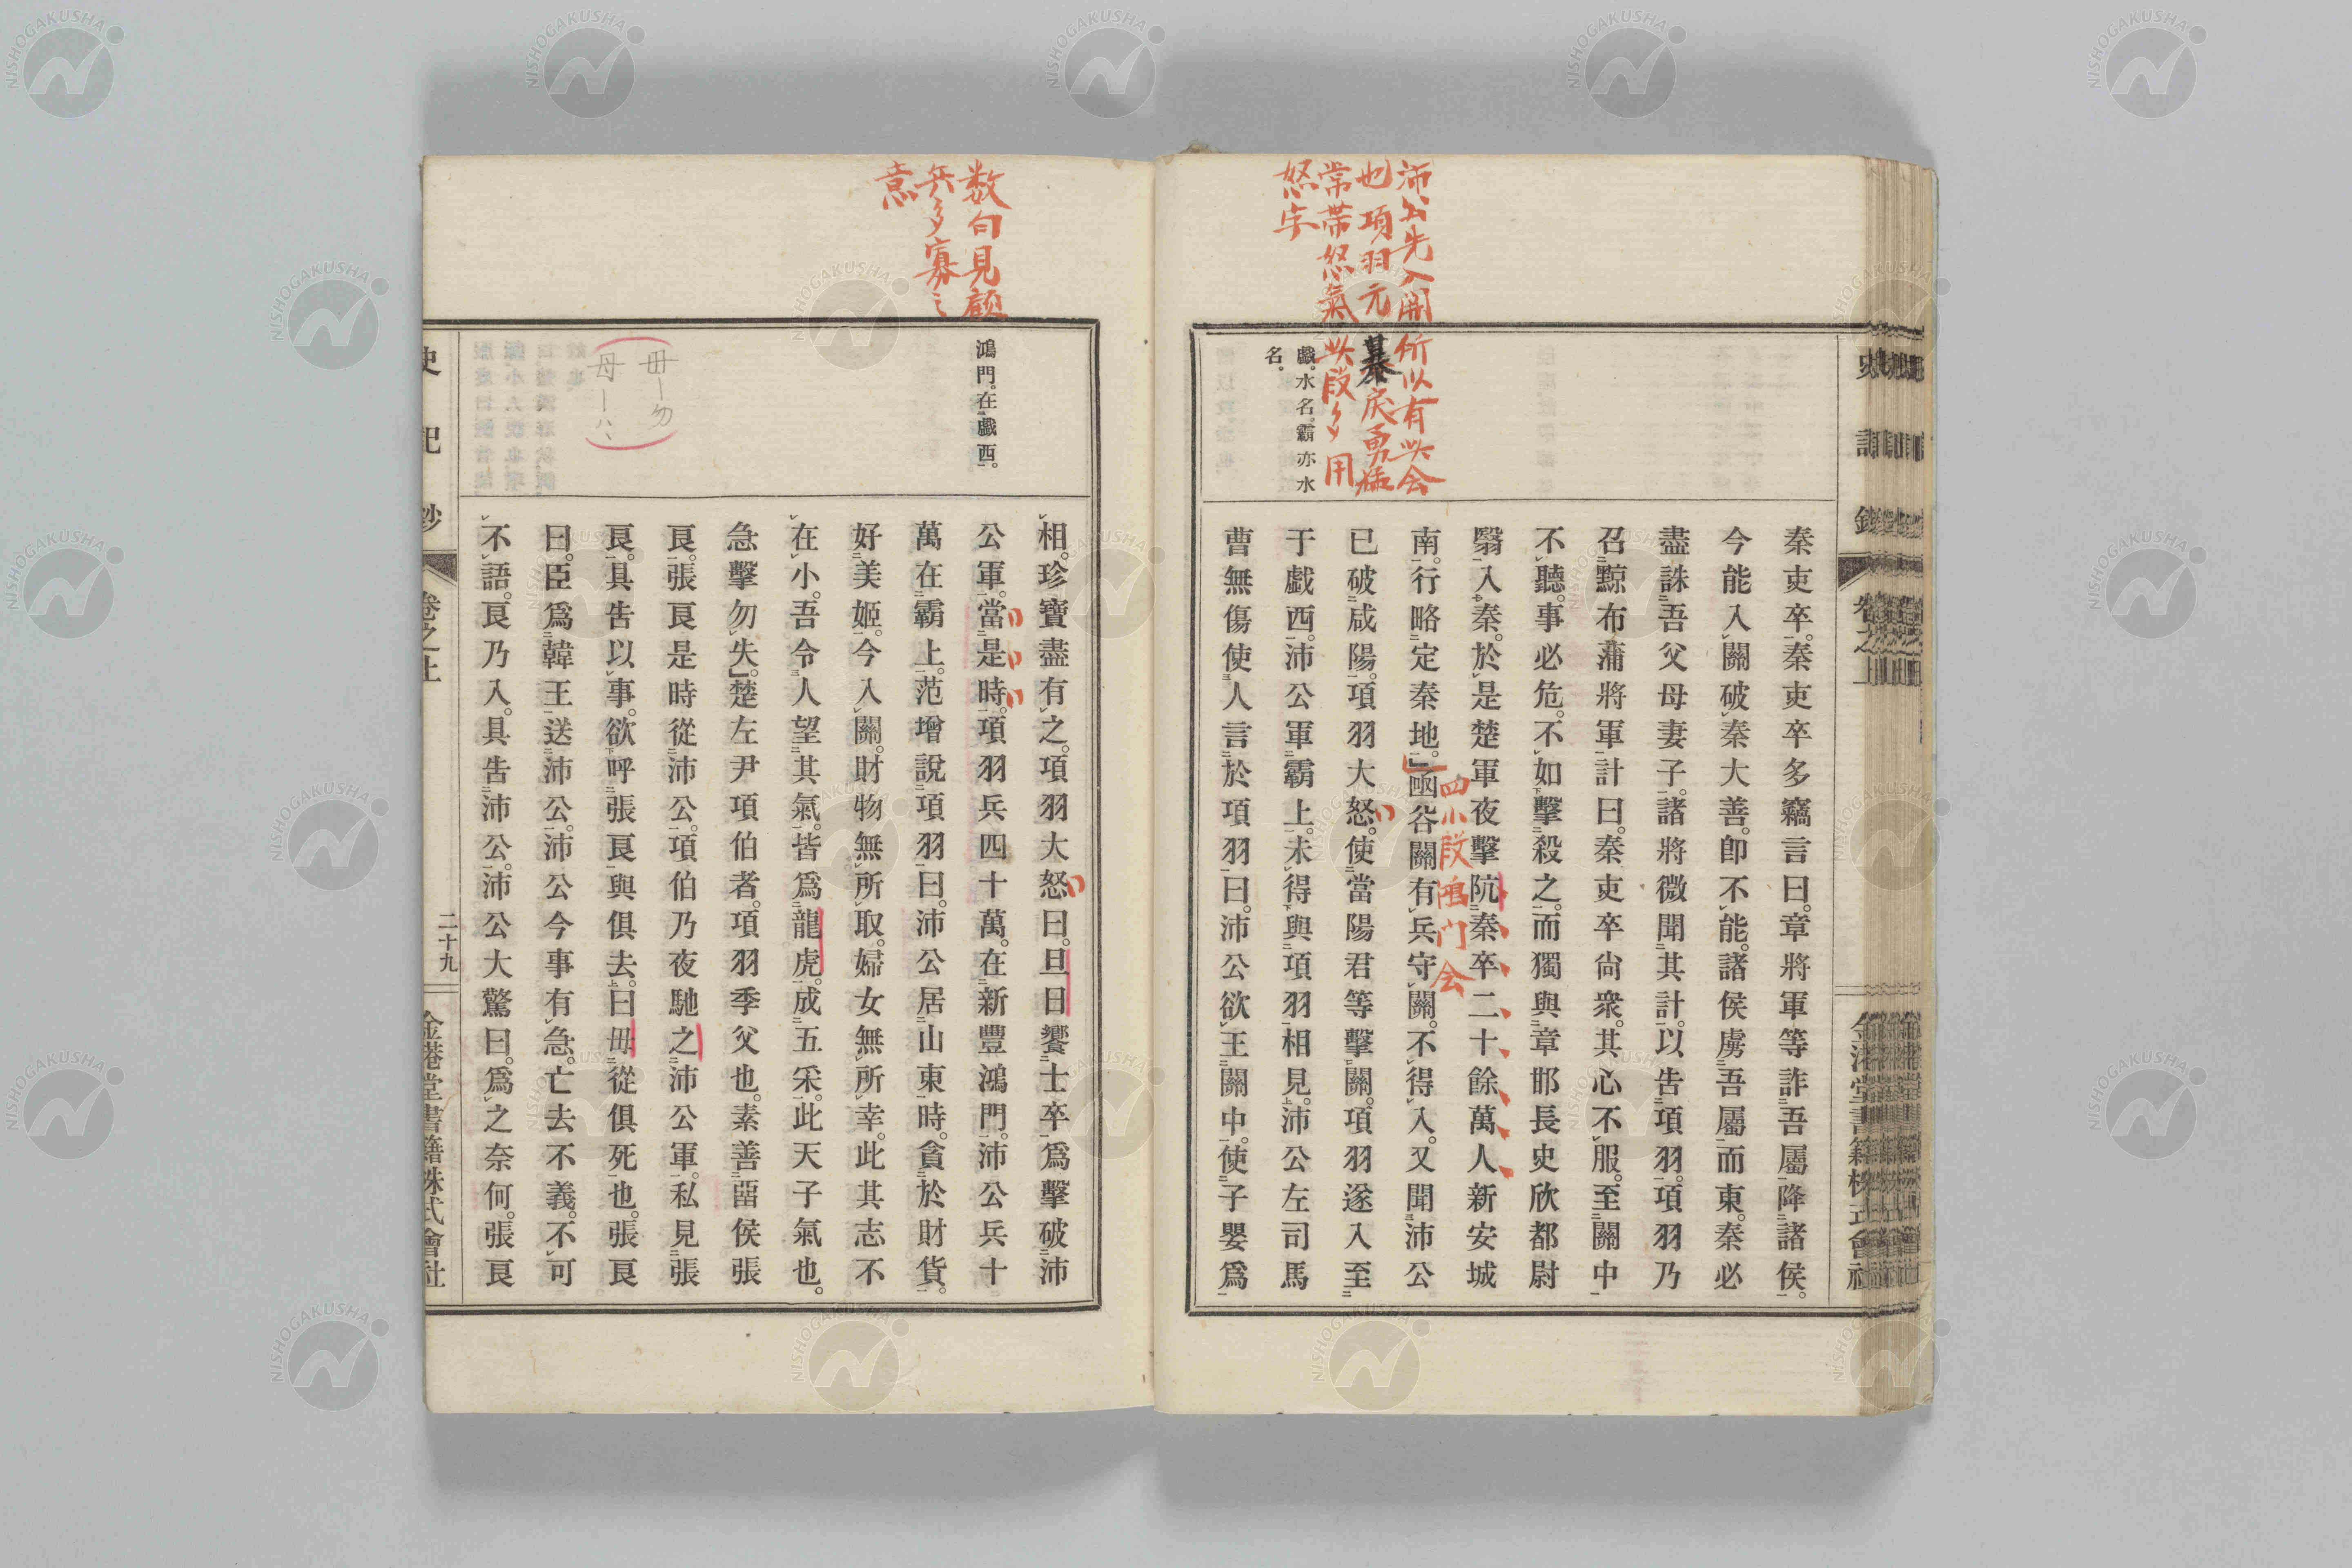 沛公先入関所以有此会
也項羽元暴戻勇猛
常帯怒氣此段多用
怒字
戲。水名。霸亦水
名。
秦吏卒。秦吏卒多竊言曰。章將軍等詐吾屬降諸侯。
今能入關破秦大善。卽不能。諸侯虜吾屬而東。秦必
盡誅吾父母妻子。諸將微聞其計。以吿項羽。項羽乃
召黥布蒲將軍計曰。秦吏卒尙衆。其心不服。至關中
不聽。事必危。不如擊殺之。而獨與章邯長史欣都尉
翳入秦。於是楚軍夜擊阬秦卒二十餘萬人新安城
南。行略定秦地。」函谷關有兵守關。不得入。又聞沛公
四小段鴻门会
已破咸陽。項羽大怒。使當陽君等擊關。項羽遂入至
于戲西。沛公軍霸上。未得與項羽相見。沛公左司馬
曹無傷使人言於項羽曰。沛公欲王關中。使子嬰爲
数句見顧
兵多寡之
意
鴻門。在戲西。
毌ー勿
母ーハヽ
相。珍寶盡有之。項羽大怒曰。旦日饗士卒。爲擊破沛
公軍。當是時。項羽兵四十萬。在新豐鴻門。沛公兵十
萬在霸上。范增說項羽曰。沛公居山東時。貪於財貨。
好美姬。今入關。財物無所取。婦女無所幸。此其志不
在小。吾令人望其氣。皆爲龍虎。成五采。此天子氣也。
急擊勿失」。楚左尹項伯者。項羽季父也。素善畱侯張
良。張良是時從沛公。項伯乃夜馳之沛公軍。私見張
良。具吿以事。欲呼張良與俱去。曰毌從俱死也。張良
曰。臣爲韓王送沛公。沛公今事有急。亡去不義。不可
不語。良乃入。具吿沛公。沛公大驚曰。爲之奈何。張良
史記鈔
卷之上
二十九
金港堂書籍株式會社